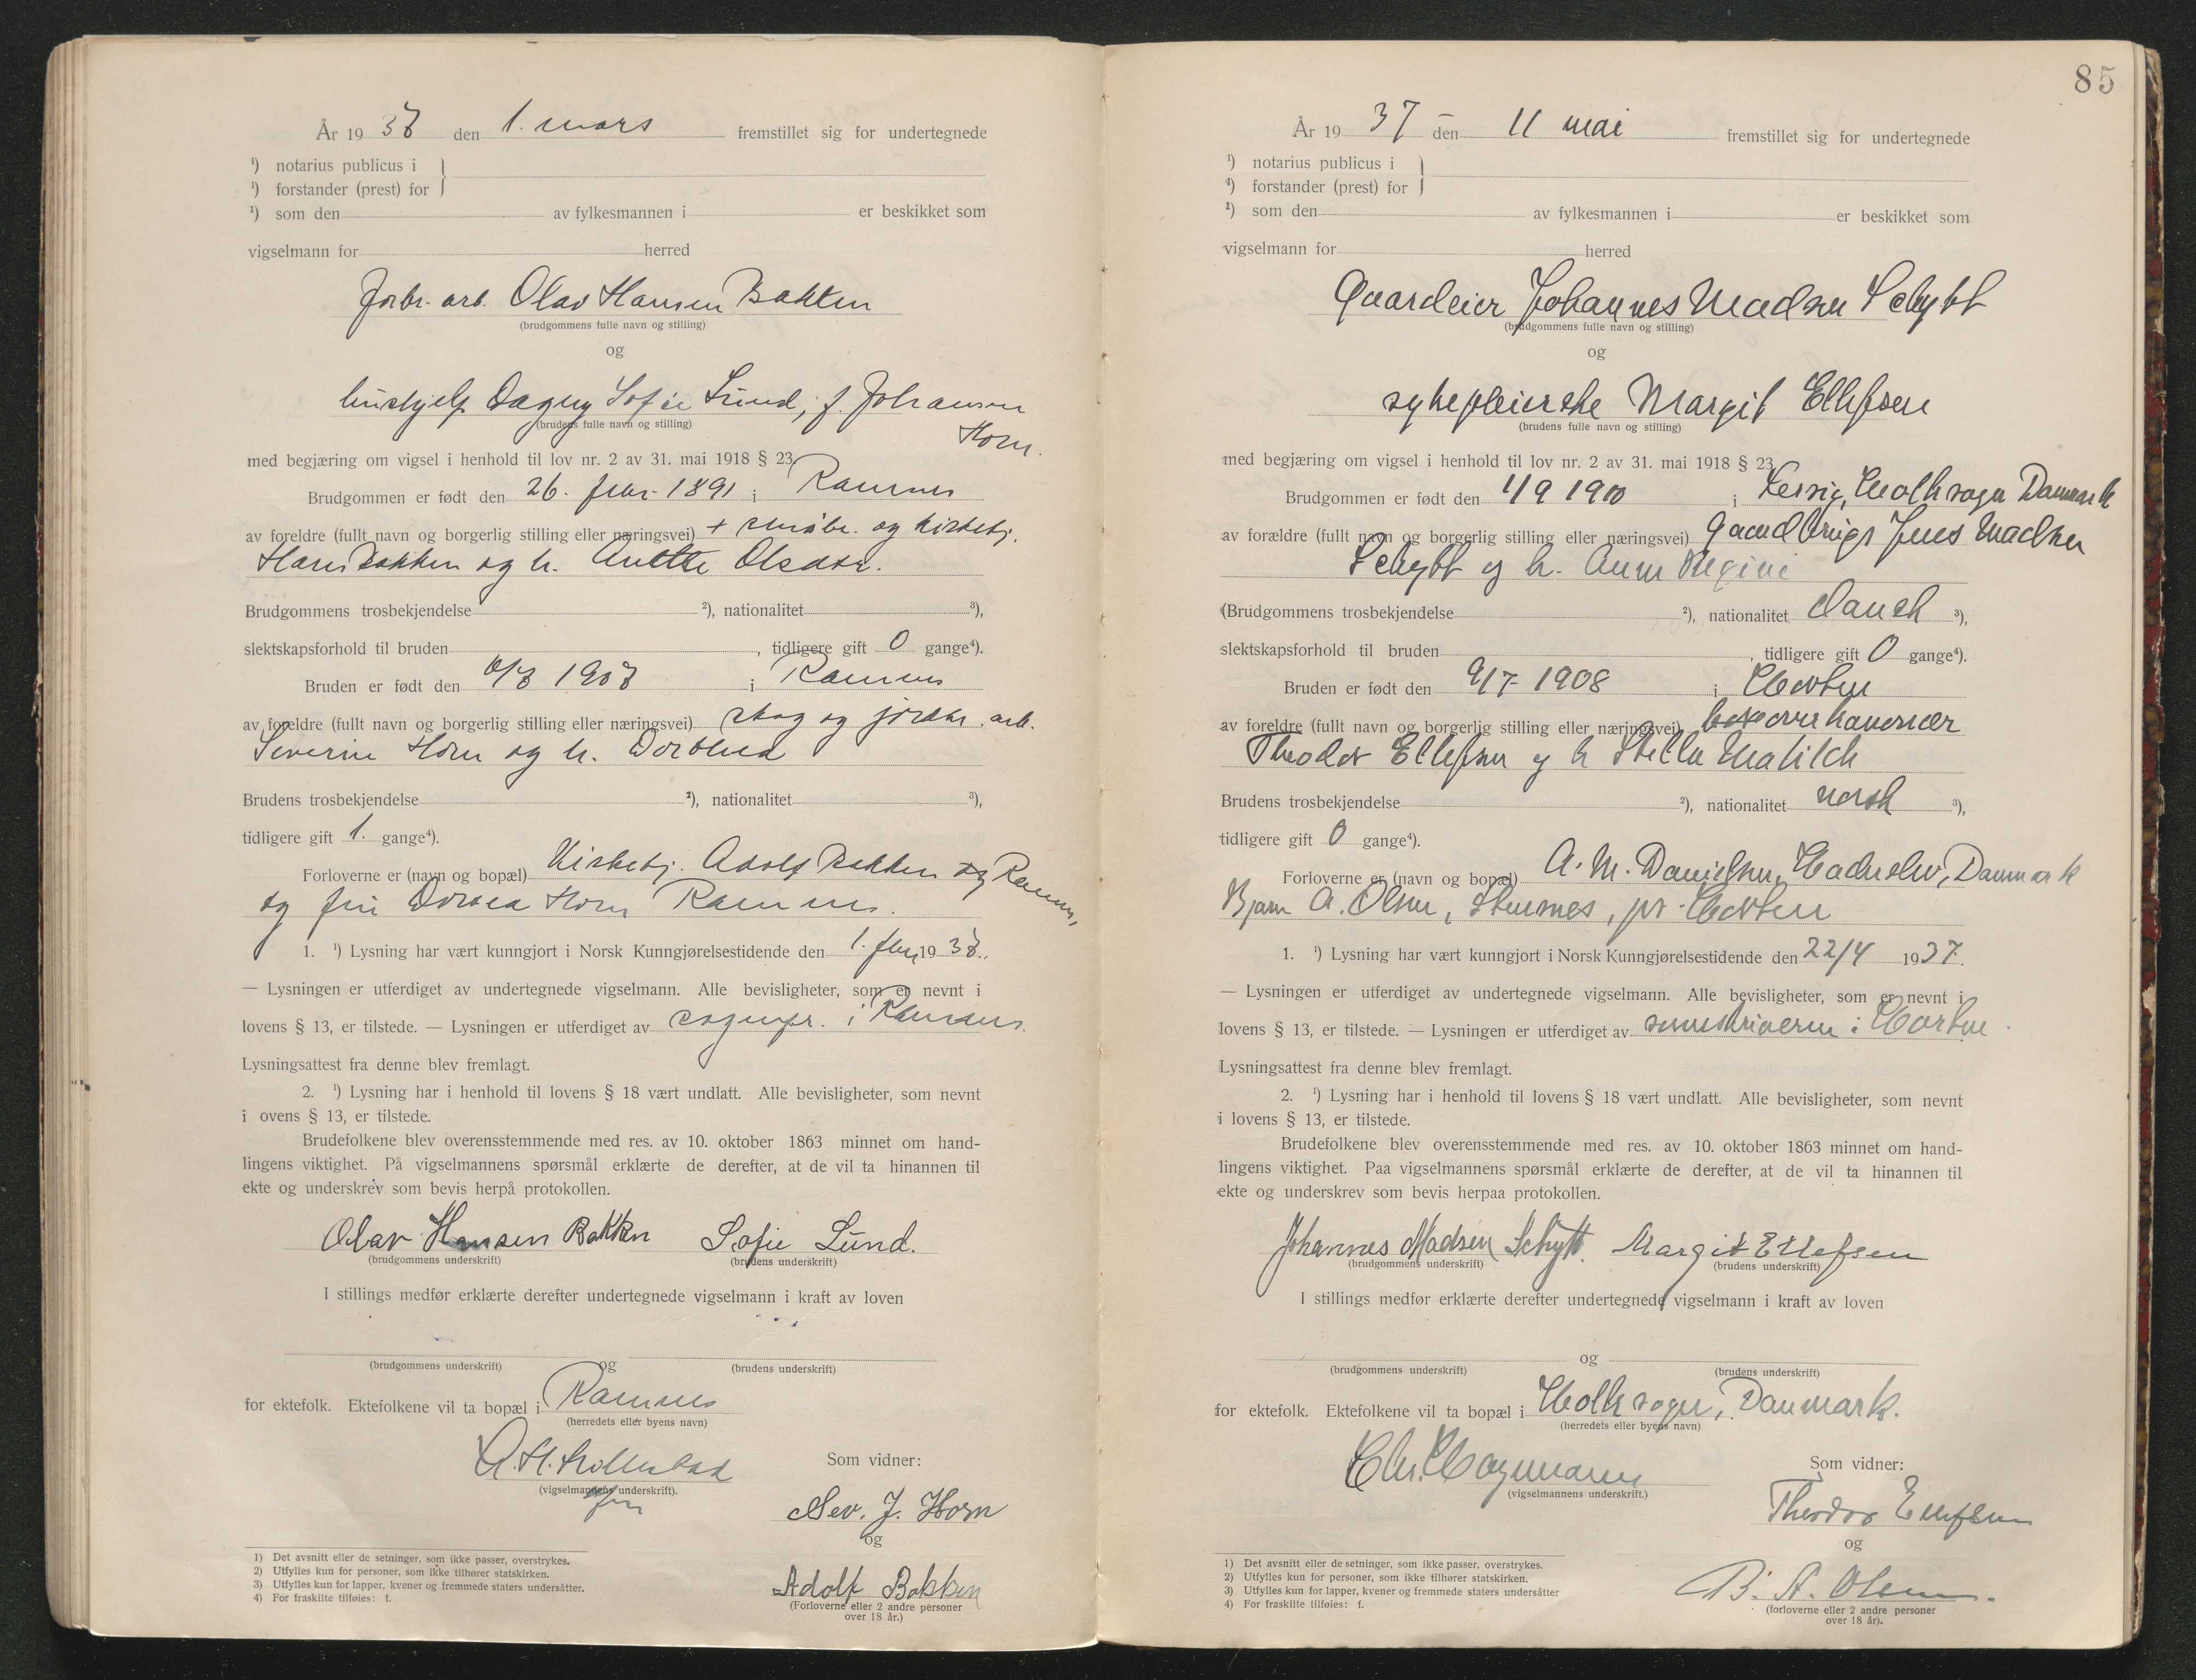 År 19 37 den 1. mars fremstillet sig for undertegnede
¹) notarius publicus i
¹) forstander (prest) for
¹) som den av fylkesmannen i er beskikket som
vigselmann for herred
Olav Hansen Bakken
(brudgommens fulle navn og stilling)
og
hushjelp Dagny Sofie Lund, f. Johansen
(brudens fulle navn og stilling)
Horn.
med begjæring om vigsel i henhold til lov nr. 2 av 31. mai 1918 § 23.
Brudgommen er født den 26. febr. 1891 i Ramnes
av foreldre (fullt navn og borgerlig stilling eller næringsvei) + småbr. og kirketj.
Hans Bakken og h. Anette Olsdtr.
Brudgommens trosbekjendelse ²), nationalitet ³),
slektskapsforhold til bruden , tidligere gift 0 gange⁴).
Bruden er født den i Ramnes
av foreldre (fullt navn og borgerlig stilling eller næringsvei) skog og jordbr. arb.
Severin Horn og h. Dorthea
Brudens trosbekjendelse ²), nationalitet ³),
tidligere gift 1. gange⁴).
Forloverne er (navn og bopæl) Kirketj. Adolf Bakken og Ramnes,
og fru Dorthea Horn Ramnes.
1. ¹) Lysning har vært kunngjort i Norsk Kunngjørelsestidende den 1. febr. 19 37.
— Lysningen er utferdiget av undertegnede vigselmann. Alle bevisligheter, som er nevnt i
lovens § 13, er tilstede. — Lysningen er utferdiget av sognepr. i Ramnes.
Lysningsattest fra denne blev fremlagt.
2. ¹) Lysning har i henhold til lovens § 18 vært undlatt. Alle bevisligheter, som nevnt
i ovens § 13, er tilstede.
Brudefolkene blev overensstemmende med res. av 10. oktober 1863 minnet om hand-
lingens viktighet. På vigselmannens spørsmål erklærte de derefter, at de vil ta hinannen til
ekte og underskrev som bevis herpå protokollen.
Olav Hansen Bakken Sofie Lund.
(brudgommens underskrift) (brudens underskrift)
I stillings medfør erklærte derefter undertegnede vigselmann i kraft av loven
og
(brudgommens underskrift) (brudens underskrift)
for ektefolk. Ektefolkene vil ta bopæl i Ramnes
(herredets eller byens navn)
Som vidner:
(vigselmannens underskrift).
Sev. J. Horn
og
Adolf Bakken
(Forloverne eller 2 andre personer
over 18 år.)
1) Det avsnitt eller de setninger, som ikke passer, overstrykes.
2) Utfylles kun for personer, som ikke tilhører statskirken.
3) Utfylles kun for lapper, kvener og fremmede staters undersåtter.
4) For fraskilte tilføies: f.
85
År 19 37 den 11 mai fremstillet sig for undertegnede
¹) notarius publicus i
¹) forstander (prest) for
¹) som den av fylkesmannen i er beskikket som
vigselmann for herred
Gaardeier Johannes Madsen Schytt
(brudgommens fulle navn og stilling)
og
sykepleierske Margit Ellefsen
(brudens fulle navn og stilling)
med begjæring om vigsel i henhold til lov nr. 2 av 31. mai 1918 § 23.
Brudgommen er født den 1/9 1900 i Danmark
av forældre (fullt navn og borgerlig stilling eller næringsvei) Jens Madsen
Schytt og h. Anne Regine
(Brudgommens trosbekjendelse ²), nationalitet Dansk ³),
slektskapsforhold til bruden , tidligere gift 0 gange⁴).
Bruden er født den 9/7 1908 i Horten
av foreldre (fullt navn og borgerlig stilling eller næringsvei) overkanoner
Theodor Ellefsen og h Stella Matilde
Brudens trosbekjendelse ²), nationalitet norsk ³),
tidligere gift 0 gange⁴).
Forloverne er (navn og bopæl) A. M. Danielsen, Haderslev, Danmark
Bjarne A. Olsen, pr. Horten
1. ¹) Lysning har vært kunngjort i Norsk Kunngjørelsestidende den 22/4 1937.
— Lysningen er utferdiget av undertegnede vigselmann. Alle bevisligheter, som er nevnt i
lovens § 13, er tilstede. — Lysningen er utferdiget av sorenskriveren i Horten.
Lysningsattest fra denne blev fremlagt.
2. ¹) Lysning har i henhold til lovens § 18 vært undlatt. Alle bevisligheter, som nevnt
i lovens § 13, er tilstede.
Brudefolkene blev overensstemmende med res. av 10. oktober 1863 minnet om hand-
lingens viktighet. Paa vigselmannens spørsmål erklærte de derefter, at de vil ta hinannen til
ekte og underskrev som bevis herpaa protokollen.
Johannes Madsen Schytt. Margit Ellefsen
(brudgommens underskrift) (brudens underskrift)
I stillings medfør erklærte derefter undertegnede vigselmann i kraft av loven
og
(brudgommens underskrift) (brudens underskrift)
for ektefolk. Ektefolkene vil ta bopæl i Holk sogn, Danmark.
(herredets eller byens navn)
Chr. Hagemann
Som vidner:
(vigselmannens underskrift.)
Theodor Ellefsen
og
B. A. Olsen.
(forloverne eller 2 andre personer
over 18 år).
1) Det avsnitt eller de setninger, som ikke passer, overstrykes.
2) Utfylles kun for personer, som ikke tilhører statskirken.
3) Utfylles kun for lapper, kvener og fremmede staters undersåtter
4) For fraskilte tilføies: f.